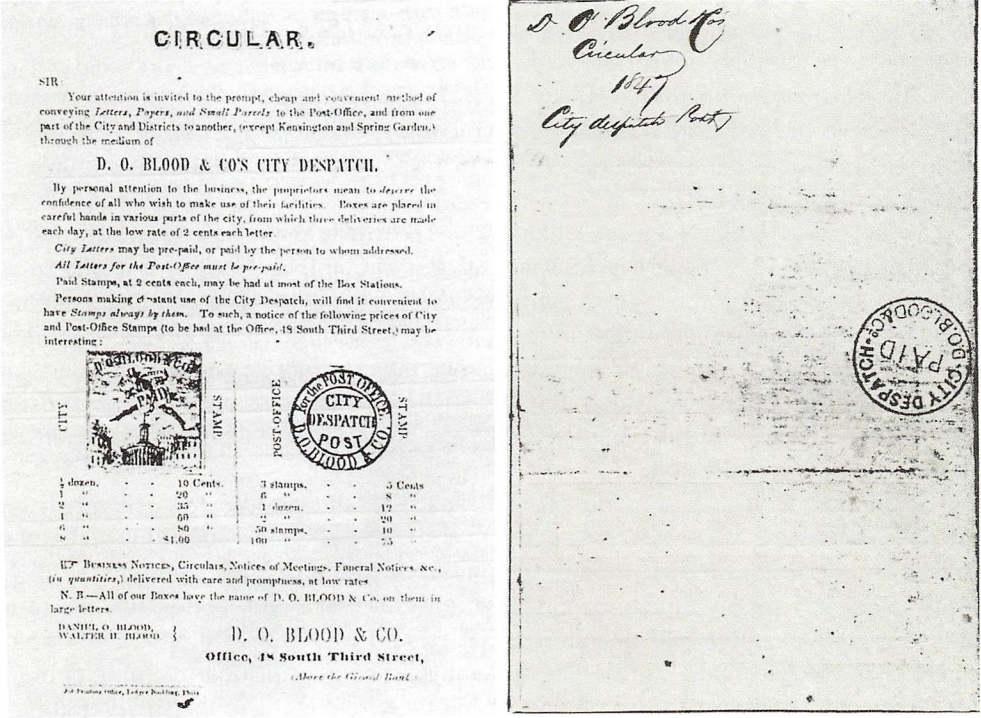 CIRCULAR.
SIR
Your attention is invited to the prompt, cheap and convenient method of
conveying Letters, Papers, and Small Parcels to the Post-Office, and from one
part of the City and Districts to another, (except Kensington and Spring Garden,)
through the medium of
D. O. BLOOD & CO'S CITY DESPATCH.
By personal attention to the business, the proprietors mean to deserve the
confidence of all who wish to make use of their facilities. Boxes are placed in
careful hands in various parts of the city, from which three deliveries are made
each day, at the low rate of 2 cents each letter.
City Letters may be pre-paid, or paid by the person to whom addressed.
All Letters for the Post-Office must be pre-paid.
Paid Stamps, at 2 cents each, may be had at most of the Box Stations.
Persons making constant use of the City Despatch, will find it convenient to
have Stamps always by them. To such, a notice of the following prices of City
and Post-Office Stamps (to be had at the Office, 48 South Third Street,) may be
interesting:
CITY
PAID
STAMP
POST-OFFICE
For the POST OFFICE.
CITY
DESPATCH
POST
D. O. BLOOD & CO.
STAMP
½ dozen. - - 10 Cents. 3 stamps. - - 5 Cents
1 " - - 20 " 6 " - - 8 "
2 " - - 35 " 1 dozen. - - 12 "
" - - 60 " 2 " - - 20 "
6 " - - 80 " 50 stamps. - - 40 "
8 " - - $1.00 100 " - - 75 "
☞ BUSINESS NOTICES, Circulars, Notices of Meetings, Funeral Notices, &c.,
(in quantities,) delivered with care and promptness, at low rates
N. B.—All of our Boxes have the name of D. O. BLOOD & Co. on them in
large letters.
DANIEL O. BLOOD,
WALTER H. BLOOD.
D. O. BLOOD & CO.
Office, 48 South Third Street,
Above the Girard Bank.
Job Printing Office, Ledger Building, Phila
D O Blood & Co's
Circular
1847
City despatch Post
D.O. BLOOD & Co's
CITY DESPATCH
PAID